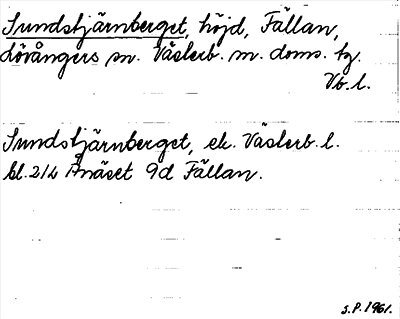 Sundstjärnberget, höjd, Fällan,
Lövångers sn. Västerb. m. doms. tg.
Vb. l.
Sundstjärnberget, ek. Västerb. l.
bl. 214 Ånäset 9d Fällan.
S.P. 1961.